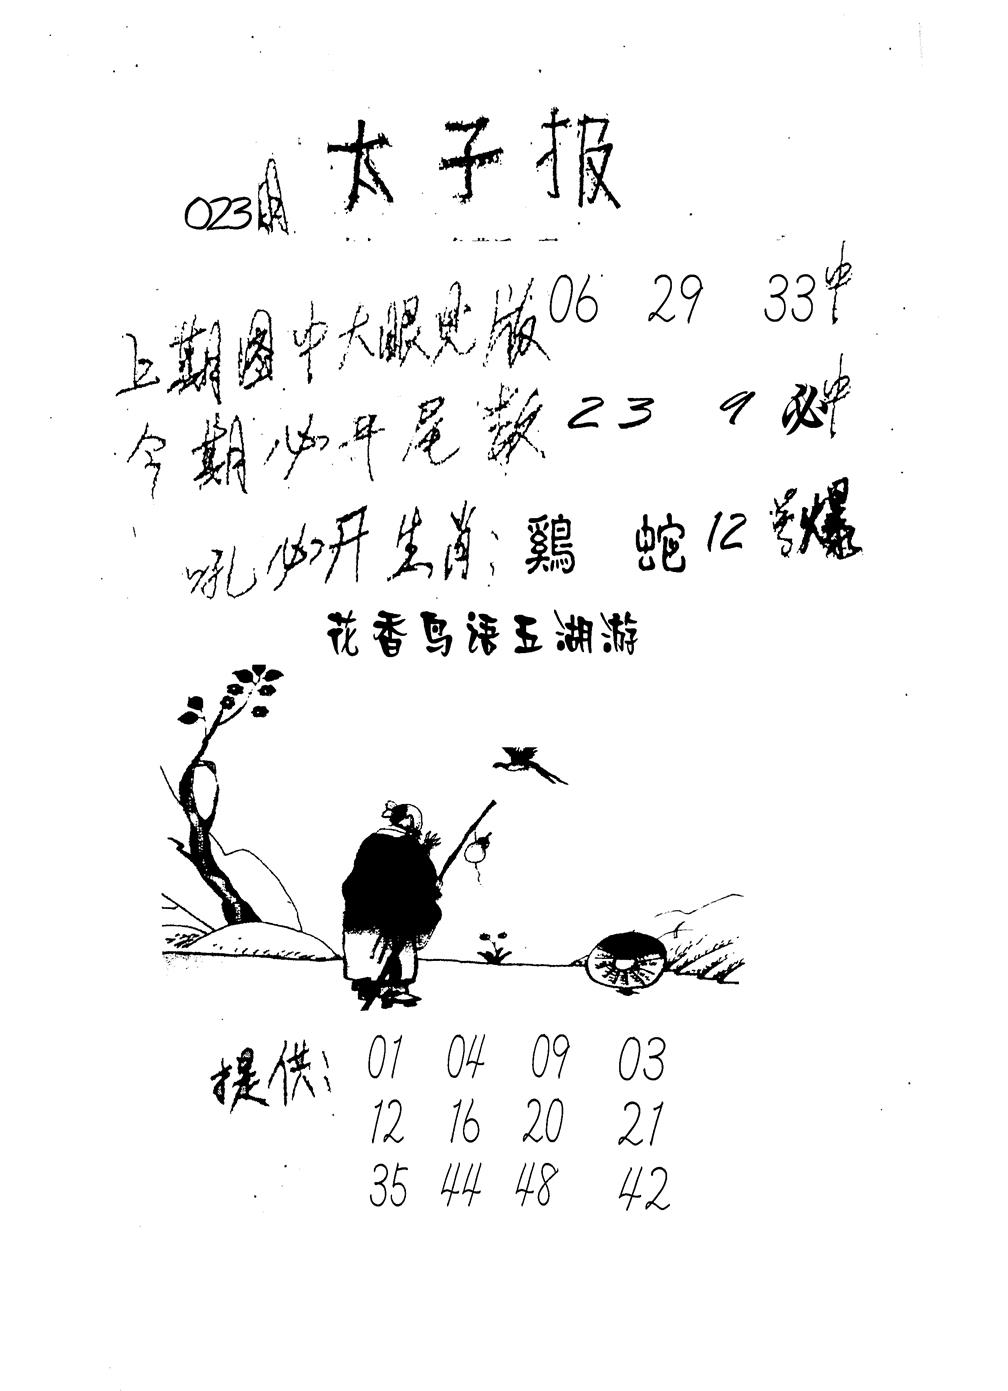 太子报
023期
上期图中大眼见版06 29 33中
今期必开尾数 2 3 9 必中
吼必开生肖：鷄 蛇 12 号爆
花香鸟语五湖游
提供： 01 04 09 03
12 16 20 21
35 44 48 42